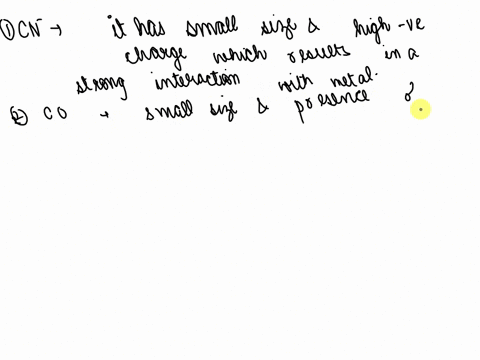 ① CN⁻ → it has small size & high -ve
charge which results in a
strong interaction with metal.
② CO → small size & presence of